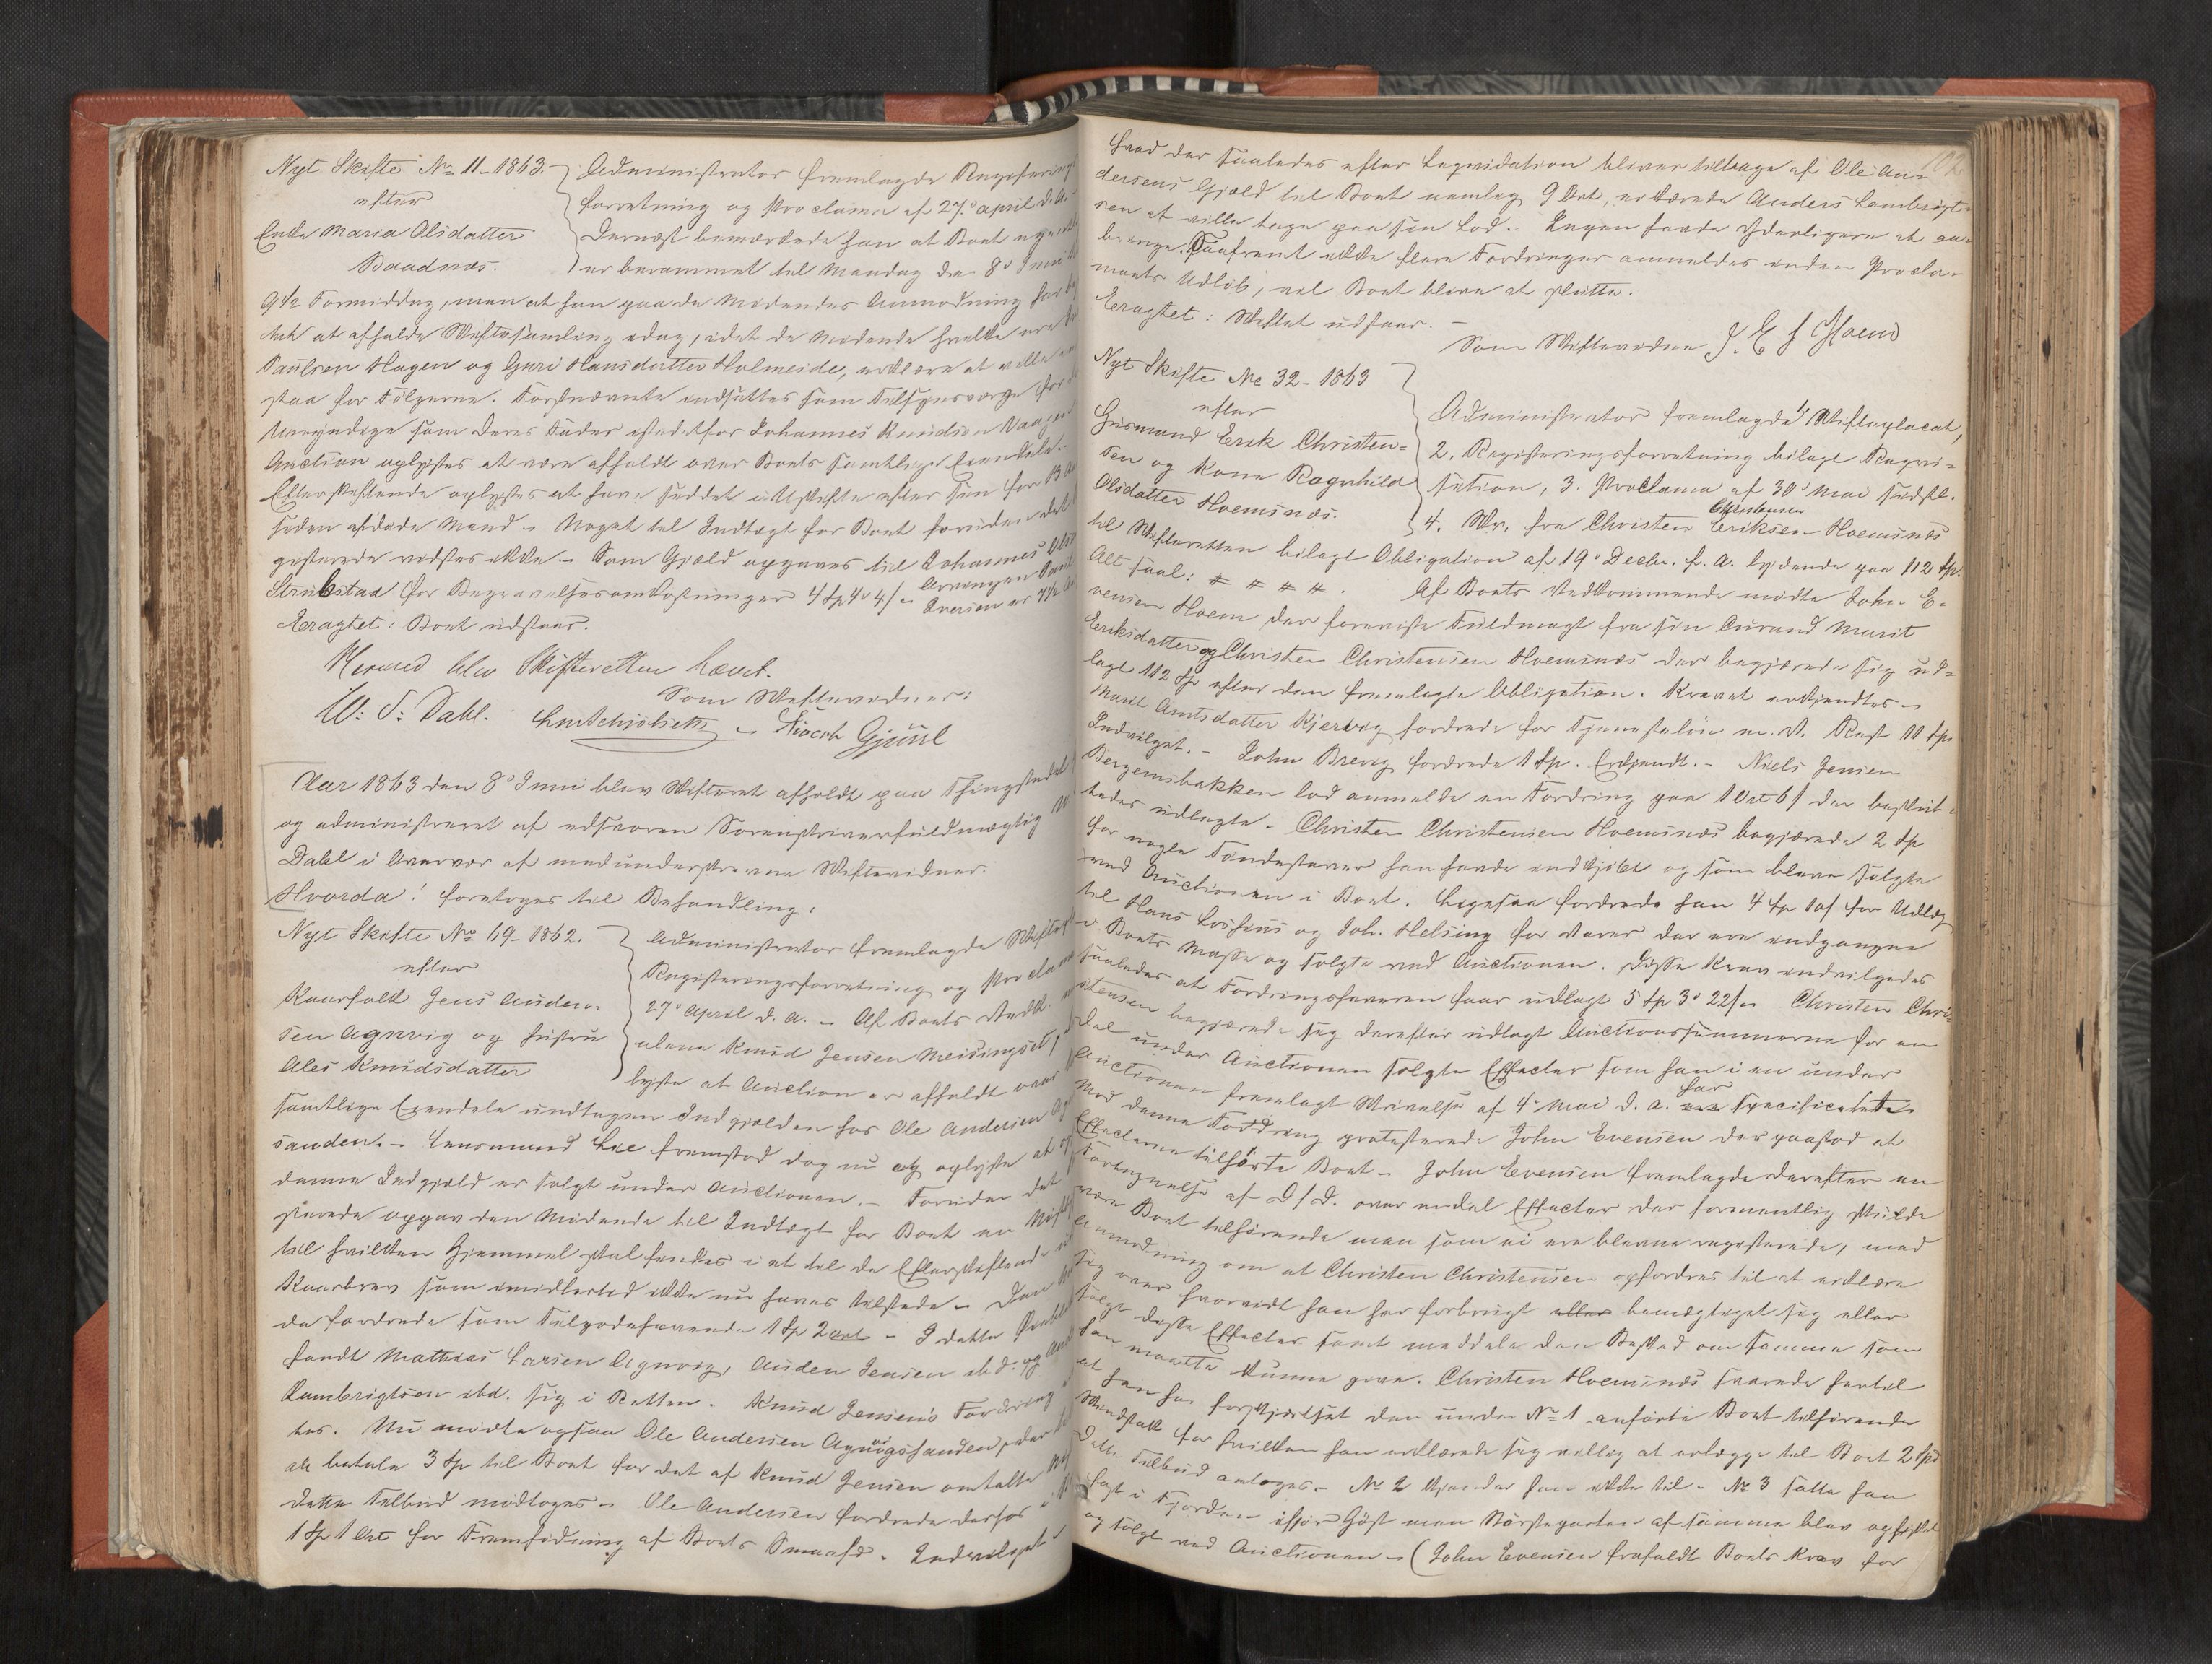 Nyt Skifte No 11-1863.
efter
Enke Maria Olsdatter
Baadnæs.
Administrator fremlagde Registrerings
forretning og Proclama af 27de April d.A.
Dernæst bemærkede han at Boet
er berammet til Mandag den 8de Juni
9½ Formiddag, men at han paa de Mødendes Anmodning har
at afholde Skiftesamling idag, idet de Mødende hvilke ere
Paulsen Hagen og Guri Hansdatter Holmeide, erklære at ville
staa for Følgerne. Førstnævnte indsattes som Tilsynsværge for
Umyndige som deres Fader istedetfor Johannes Knudsen Vaagen
Auction oplystes at være afholdt over Boets samtlige Eiendele.
Efterskeftende oplystes at have siddet i Uskifte efter sin for
siden afdøde Mand. Noget til Indtægt for Boet foruden det
gistrerede vidstes ikke. Som Gjæld opgaves til Johannes
Strikstad for Begravelsesomkostninger 4 Sp 4 4/
Eragtet: Boet udstaar.
Hermed blev Skifteretten hævet.
Som Skiftevidner:
W: S: Dahl.
Gjüül
Aar 1863 den 8de Juni blev Skifteret afholdt paa Thingstedet
og administreret af edsvoren Sorenskriverfuldmægtig W.
Dahl i Overvær af medunderskrevne Skiftevidner.
Hvorda! foretoges til Behandling:
Nyt Skifte No 69-1862.
efter
Kaarfolk Jens Anden-
sen Agnvig og Hustru
Ales Knudsdatter
Administrator fremlagde
Registreringsforretning og Proclama
27de April d.A. - Af Boets Vedk.
alene Knud Jensen Meisingset,
lyste at Auction er afholdt over
samtlige Eiendele undtagen Indgjælden hos Ole Andersen
sanden. - Lensmand Lie fremstod dog nu og oplyste at
denne Indgjæld er solgt under Auctionen. - Foruden det
strerede opgav den Mødende til Indtægt for Boet en
til hvilken Hjemmel skal findes i et til de Efterskeftende
Kaarbrev som imidlertid ikke nu haves tilstede -
de fordrede som Tilgodehavende 1 Sp 2 ort - I dette
fandt Mathias Larsen Agnvig, Anden Jensen ibd. og
Lambrigtsen ibd. sig i Retten. Knud Jensens Fordring
tes. Nu mødte ogsaa Ole Andersen Agnvigssanden, der
at betale 3 Sp til Boet for det af Knud Jensen omtalte
Dette Tilbud modtoges - Ole Andersen fordrede derhos
1 Sp 1 Ort for Fremfødning af Boets Smaafæ. Indvilget
hvad der saaledes efter Liqvidation bliver tilbage af Ole An-
dersens Gjæld til Boet nemlig 9 Ort, erklærede Anders Lambrigt-
sen at ville tage paa sin Lod. Ingen havde Yderligere at an-
bringe. Saafremt ikke flere Fordringer anmeldes inden Procla-
maets Udløb, vil Boet blive at slutte.
Eragtet: Skiftet udstaar. -
Som Skiftevidne J. E J Hoem
Nyt Skifte No 32-1863
efter
Huusmand Erik Christen-
sen og Kone Ragnhild
Olsdatter Hoemsnæs.
Administrator fremlagde 1, Skifteplacat,
2. Registreringsforretning bilagt Reqvi-
sition, 3. Proclama af 30de Mai sidstl.
4. Skr. fra Christen Christensen Eriksen Hoemsnæs
til Skifteretten bilagt Obligation af 19de Decbr. f. A. lydende paa 112 Sp.
Alt saal: # # # #. Af Boets Vedkommende mødte John E-
vensen Hoem der foreviste Fuldmagt fra sin Curand Marit
Eriksdatter og Christen Christensen Hoemsnæs der begjærede sig ud-
lagt 112 Sp efter den fremlagte Obligation. Kravet erkjendtes -
Marit Amtsdatter Kjervig fordrede for Tjenesteløn m. V. Rest 11 Sp
Indvilget. - John Brevig fordrede 1 Sp. Erkjendt. - Niels Jensen
Bergemsbakken lod anmelde en Fordring paa 1 Ort 6/ der besluttedes
udlagte. Christen Christensen Hoemsnæs begjærede 2 Sp
for nogle Tøndestaver han havde indkjøbt og som bleve solgte
ved Auctionen i Boet. Ligesaa fordrede han 4 Sp 10/ for Udlæg
til Hans Losjius og Joh. Helsing for Varer der ere indgangne
i Boets Masse og solgte ved Auctionen. Disse Krav indvilgedes
saaledes at Fordringshaveren faar udlagt 5 Sp 3 22/. Christen Chri-
stensen begjærede sig derefter udlagt Auctionssummerne for en
Del under Auctionen solgte Effecter som han i en under
Auctionen fremlagt Skrivelse af 4de Mai d. A. har specificeret.
Mod denne Fordring protesterede John Evensen der paastod at
Effecterne tilhørte Boet. John Evensen fremlagde derefter en
Fortegnelse af D/D. over endel Effecter der formentlig skulde
være Boet tilhørende men som ei ere blevne registrerede, med
Anmodning om at Christen Christensen opfordres til at erklære
sig over hvorvidt han har forbrugt eller bemægtiget sig eller
solgt disse Effecter samt meddele den Besked om samme som
han maatte kunne give. Christen Hoemsnæs svarede hertil
at han har forskjærtset den under No 1 anførte Boet tilhørende
for hvilken han erklærede sig villig at erlægge til Boet 2 Spd
Dette Tilbud antoges. No 2 kjender han ikke til. No 3 satte han
sagt i Fjorden ifjor Høst men Størsteparten af samme blev opfisket
og solgt ved Auctionen - (John Evensen frafaldt Boets Krav for